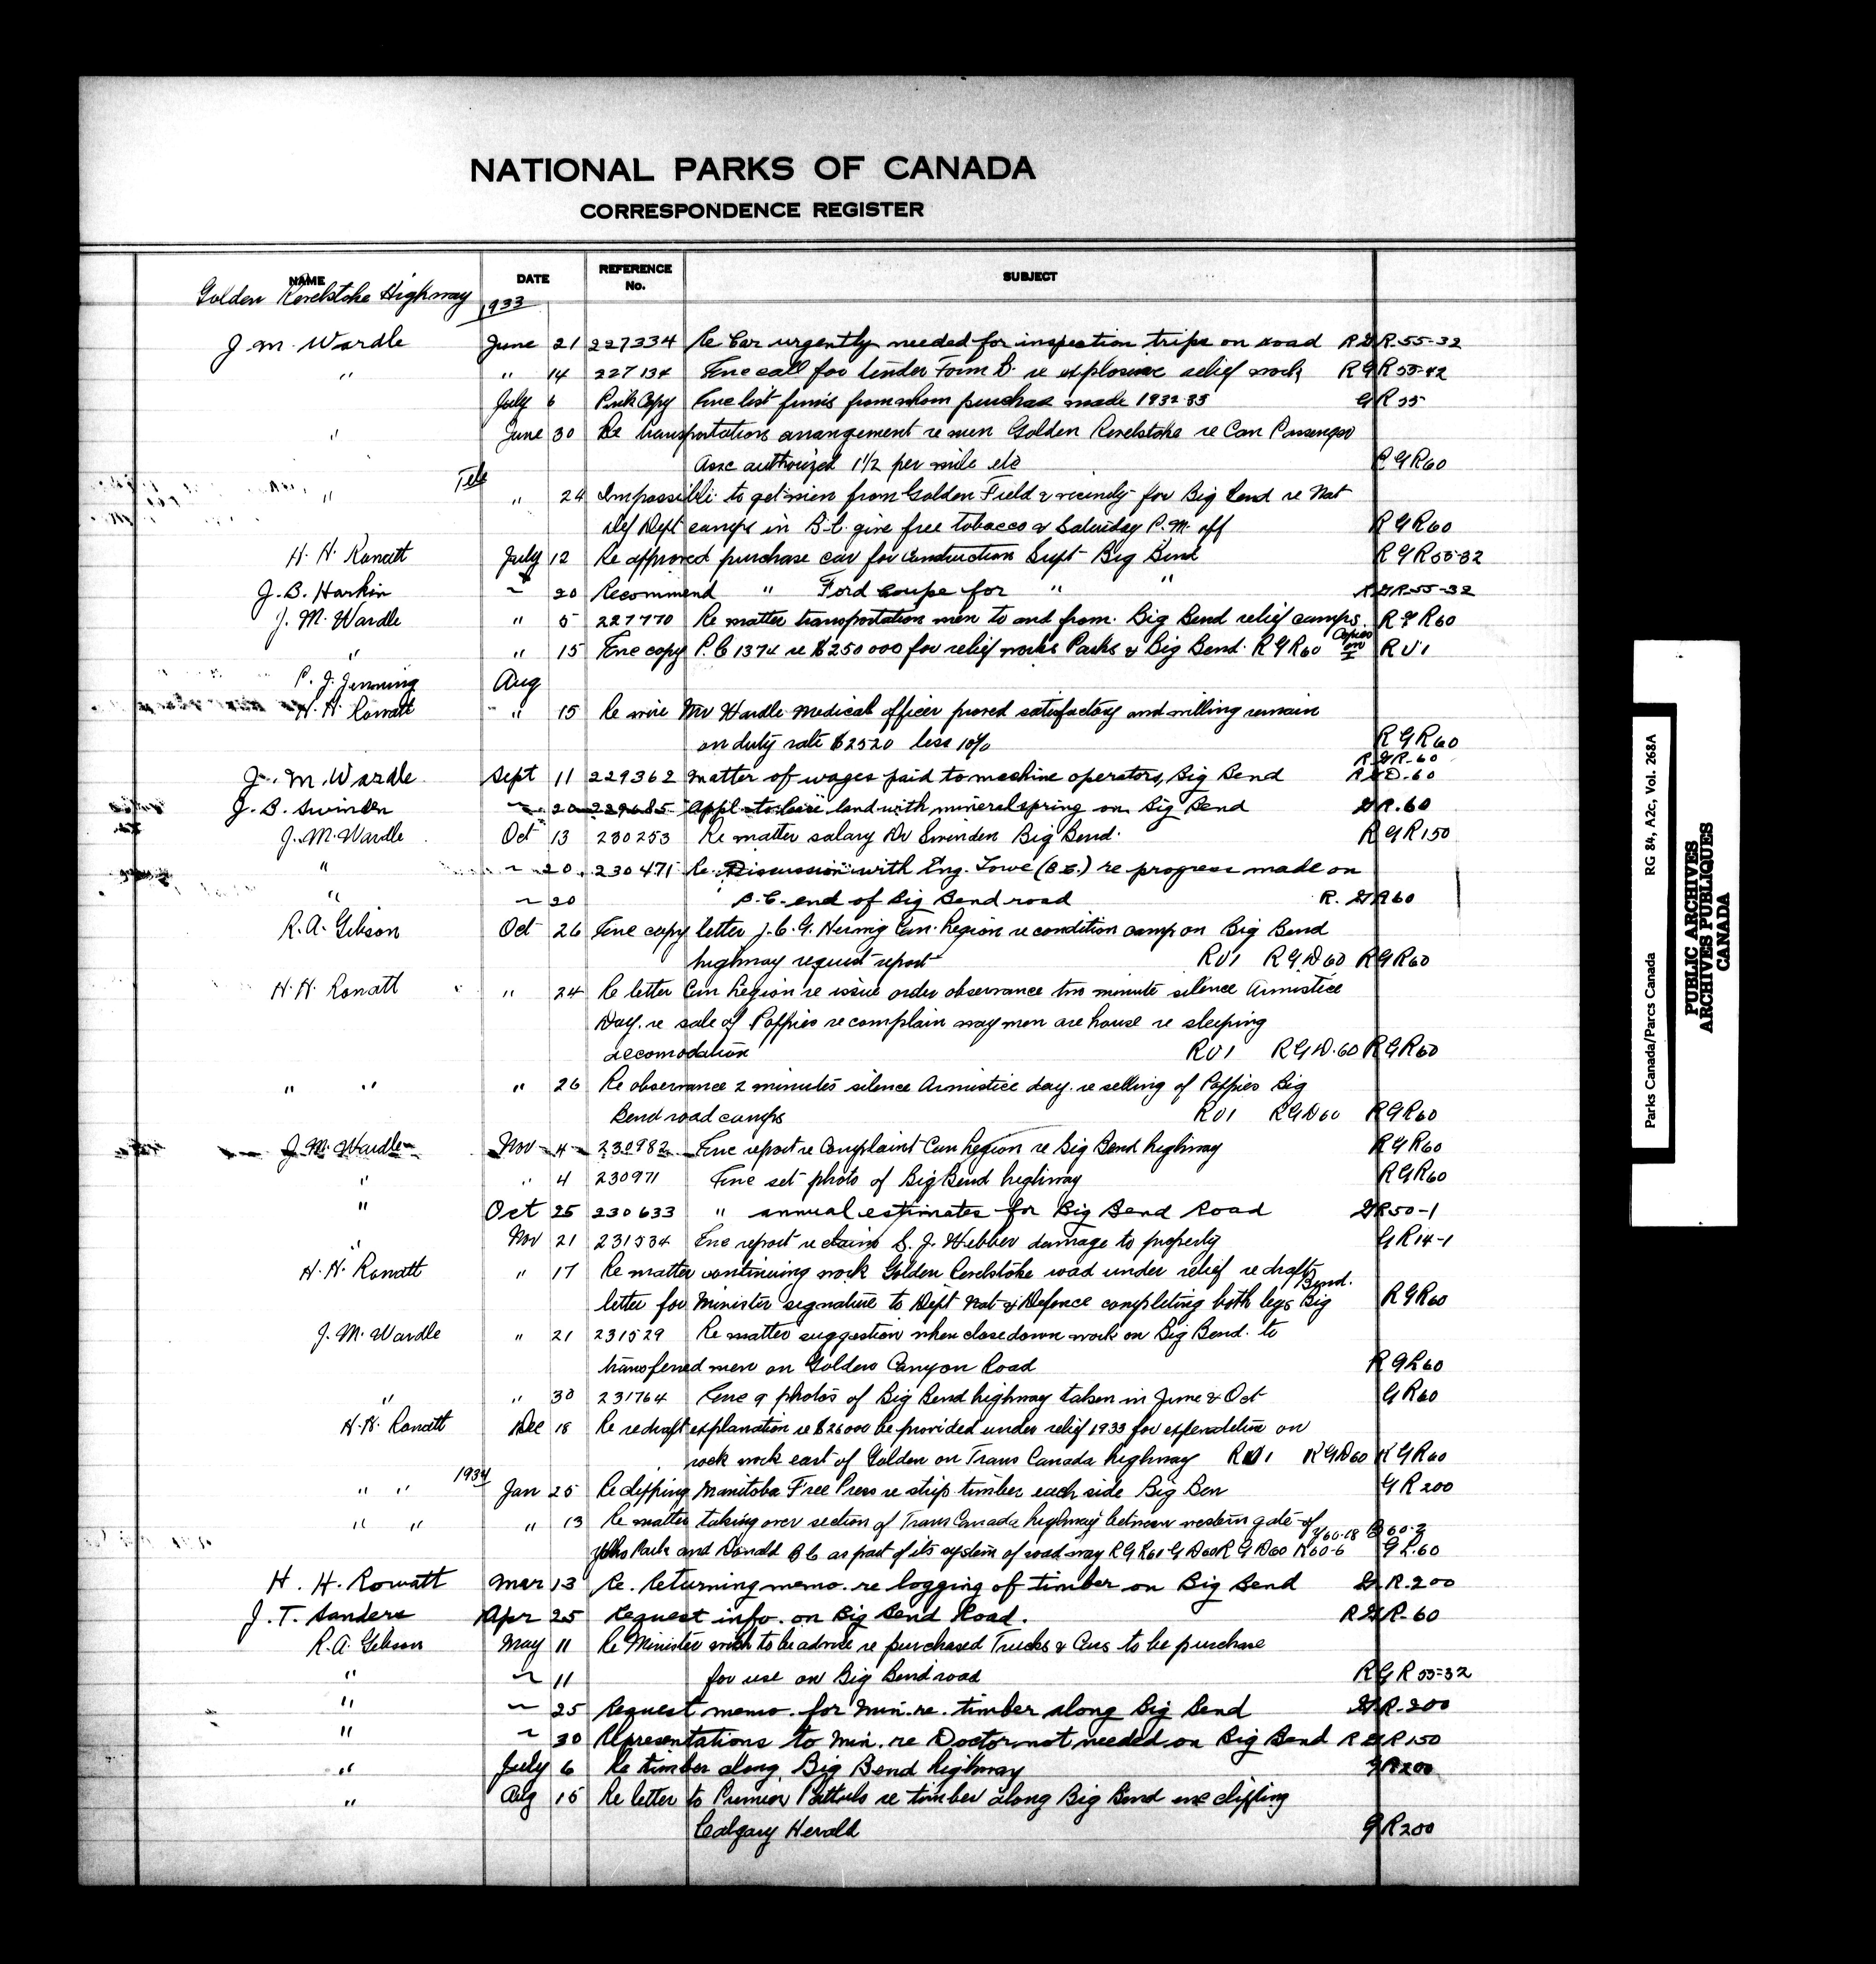 NATIONAL PARKS OF CANADA
CORRESPONDENCE REGISTER
NAME DATE REFERENCE No. SUBJECT
Golden Revelstoke Highway 1933
J. M. Wardle June 21 227334 Re Car urgently needed for inspection trips on road RGR-55-32
" " 14 227134 Enc call for tender Form D. re explosive relief work RGR 55-42
July 6 Pink Copy Enc list firms from whom purchase made 1932-33 GR 55
" June 30 Re transportation arrangement re men Golden Revelstoke re Can Passenger
Assc authorized 1 1/2 per mile etc RGR60
Tele
" " 24 Impossible to get men from Golden Field & vicinity for Big Bend re Nat
Def Dept camps in B.C. give free tobacco & Saturday P.M. off RGR60
H. H. Rowatt July 12 Re approved purchase car for construction Supt Big Bend RGR55-32
J. B. Harkin " 20 Recommend " Ford coupe for " " RGR-55-32
J. M. Wardle " 5 227770 Re matter transportation men to and from Big Bend relief camps. RGR60
" " 15 Enc copy P.C 1374 re $250000 for relief works Parks & Big Bend. RGR60 Copies on RU1
P. J. Jennings Aug
H. H. Rowatt " 15 Re wire Mr Wardle medical officer proved satisfactory and willing remain
on duty rate $2520 less 10% RGR60
RGR-60
J. M. Wardle Sept 11 229362 matter of wages paid to machine operators, Big Bend RGD-60
J. B. Swinden " 20 229685 appl to lease land with mineral spring on Big Bend GR.60
J. M. Wardle Oct 13 230253 Re matter salary Dr Swinden Big Bend. RGR150
" " 20 230471 Re. Discussion with Eng. Lowe (B.C.) re progress made on
" " 20 B.C. end of Big Bend road R. GR60
R. A. Gibson Oct 26 Enc copy letter J. C. G. Herwig Can. Legion re condition camp on Big Bend
highway request report RU1 RGD60 RGR60
H. H. Rowatt " 24 Re letter Can Legion re issue order observance two minute silence Armistice
Day. re sale of Poppies re complain way men are house re sleeping
accomodation RU1 RGD.60 RGR60
" " " 26 Re observance 2 minutes silence Armistice day. re selling of Poppies Big
Bend road camps RU1 RGD60 RGR60
J. M. Wardle Nov 4 230982 Enc report re Complaint Can Legion re Big Bend highway RGR60
" " 4 230971 Enc set photo of Big Bend highway RGR60
" Oct 25 230633 " annual estimates for Big Bend Road GR50-1
" Nov 21 231534 Enc report re claims S. J. Webber damage to property GR14-1
H. H. Rowatt " 17 Re matter continuing work Golden Revelstoke road under relief re draft
letter for Minister signature to Dept Nat & Defence completing both legs Big Bend. RGR60
J. M. Wardle " 21 231529 Re matter suggestion when closedown work on Big Bend. to
transferred men on Golden Canyon Road RGR60
" " 30 231764 Enc 9 photos of Big Bend highway taken in June & Oct GR60
H. H. Rowatt Dec 18 Re redraft explanation re $26000 be provided under relief 1933 for expenditure on
rock work east of Golden on Trans Canada highway RU1 RGD60 RGR60
1934
" " Jan 25 Re clipping Manitoba Free Press re strip timber each side Big Ben GR200
" " " 13 Re matter taking over section of Trans Canada highway between western gate of
Yoho Park and Donald B C as part of its system of road way RGR60 GD60 RGD60 K60-6 Y60-18 B60-2 GR.60
H. H. Rowatt Mar 13 Re. Returning memo. re logging of timber on Big Bend GR.200
J. T. Sanders Apr 25 Request info. on Big Bend Road. RGR-60
R. A. Gibson May 11 Re Minister wish to be advise re purchased Trucks & Cars to be purchase
" " 11 for use on Big Bend road RGR 55-32
" " 25 Request memo. for Min. re. timber along Big Bend GR-200
" " 30 Representations to Min. re Doctor not needed on Big Bend RGR150
" July 6 Re timber along Big Bend highway GR200
" Aug 15 Re letter to Premier Pattullo re timber along Big Bend enc clipping
Calgary Herald GR200
Parks Canada/Parcs Canada RG 84, A2c, Vol. 268A
PUBLIC ARCHIVES
ARCHIVES PUBLIQUES
CANADA